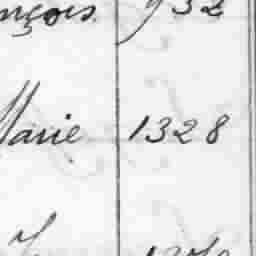 nçois 932
Marie 1328